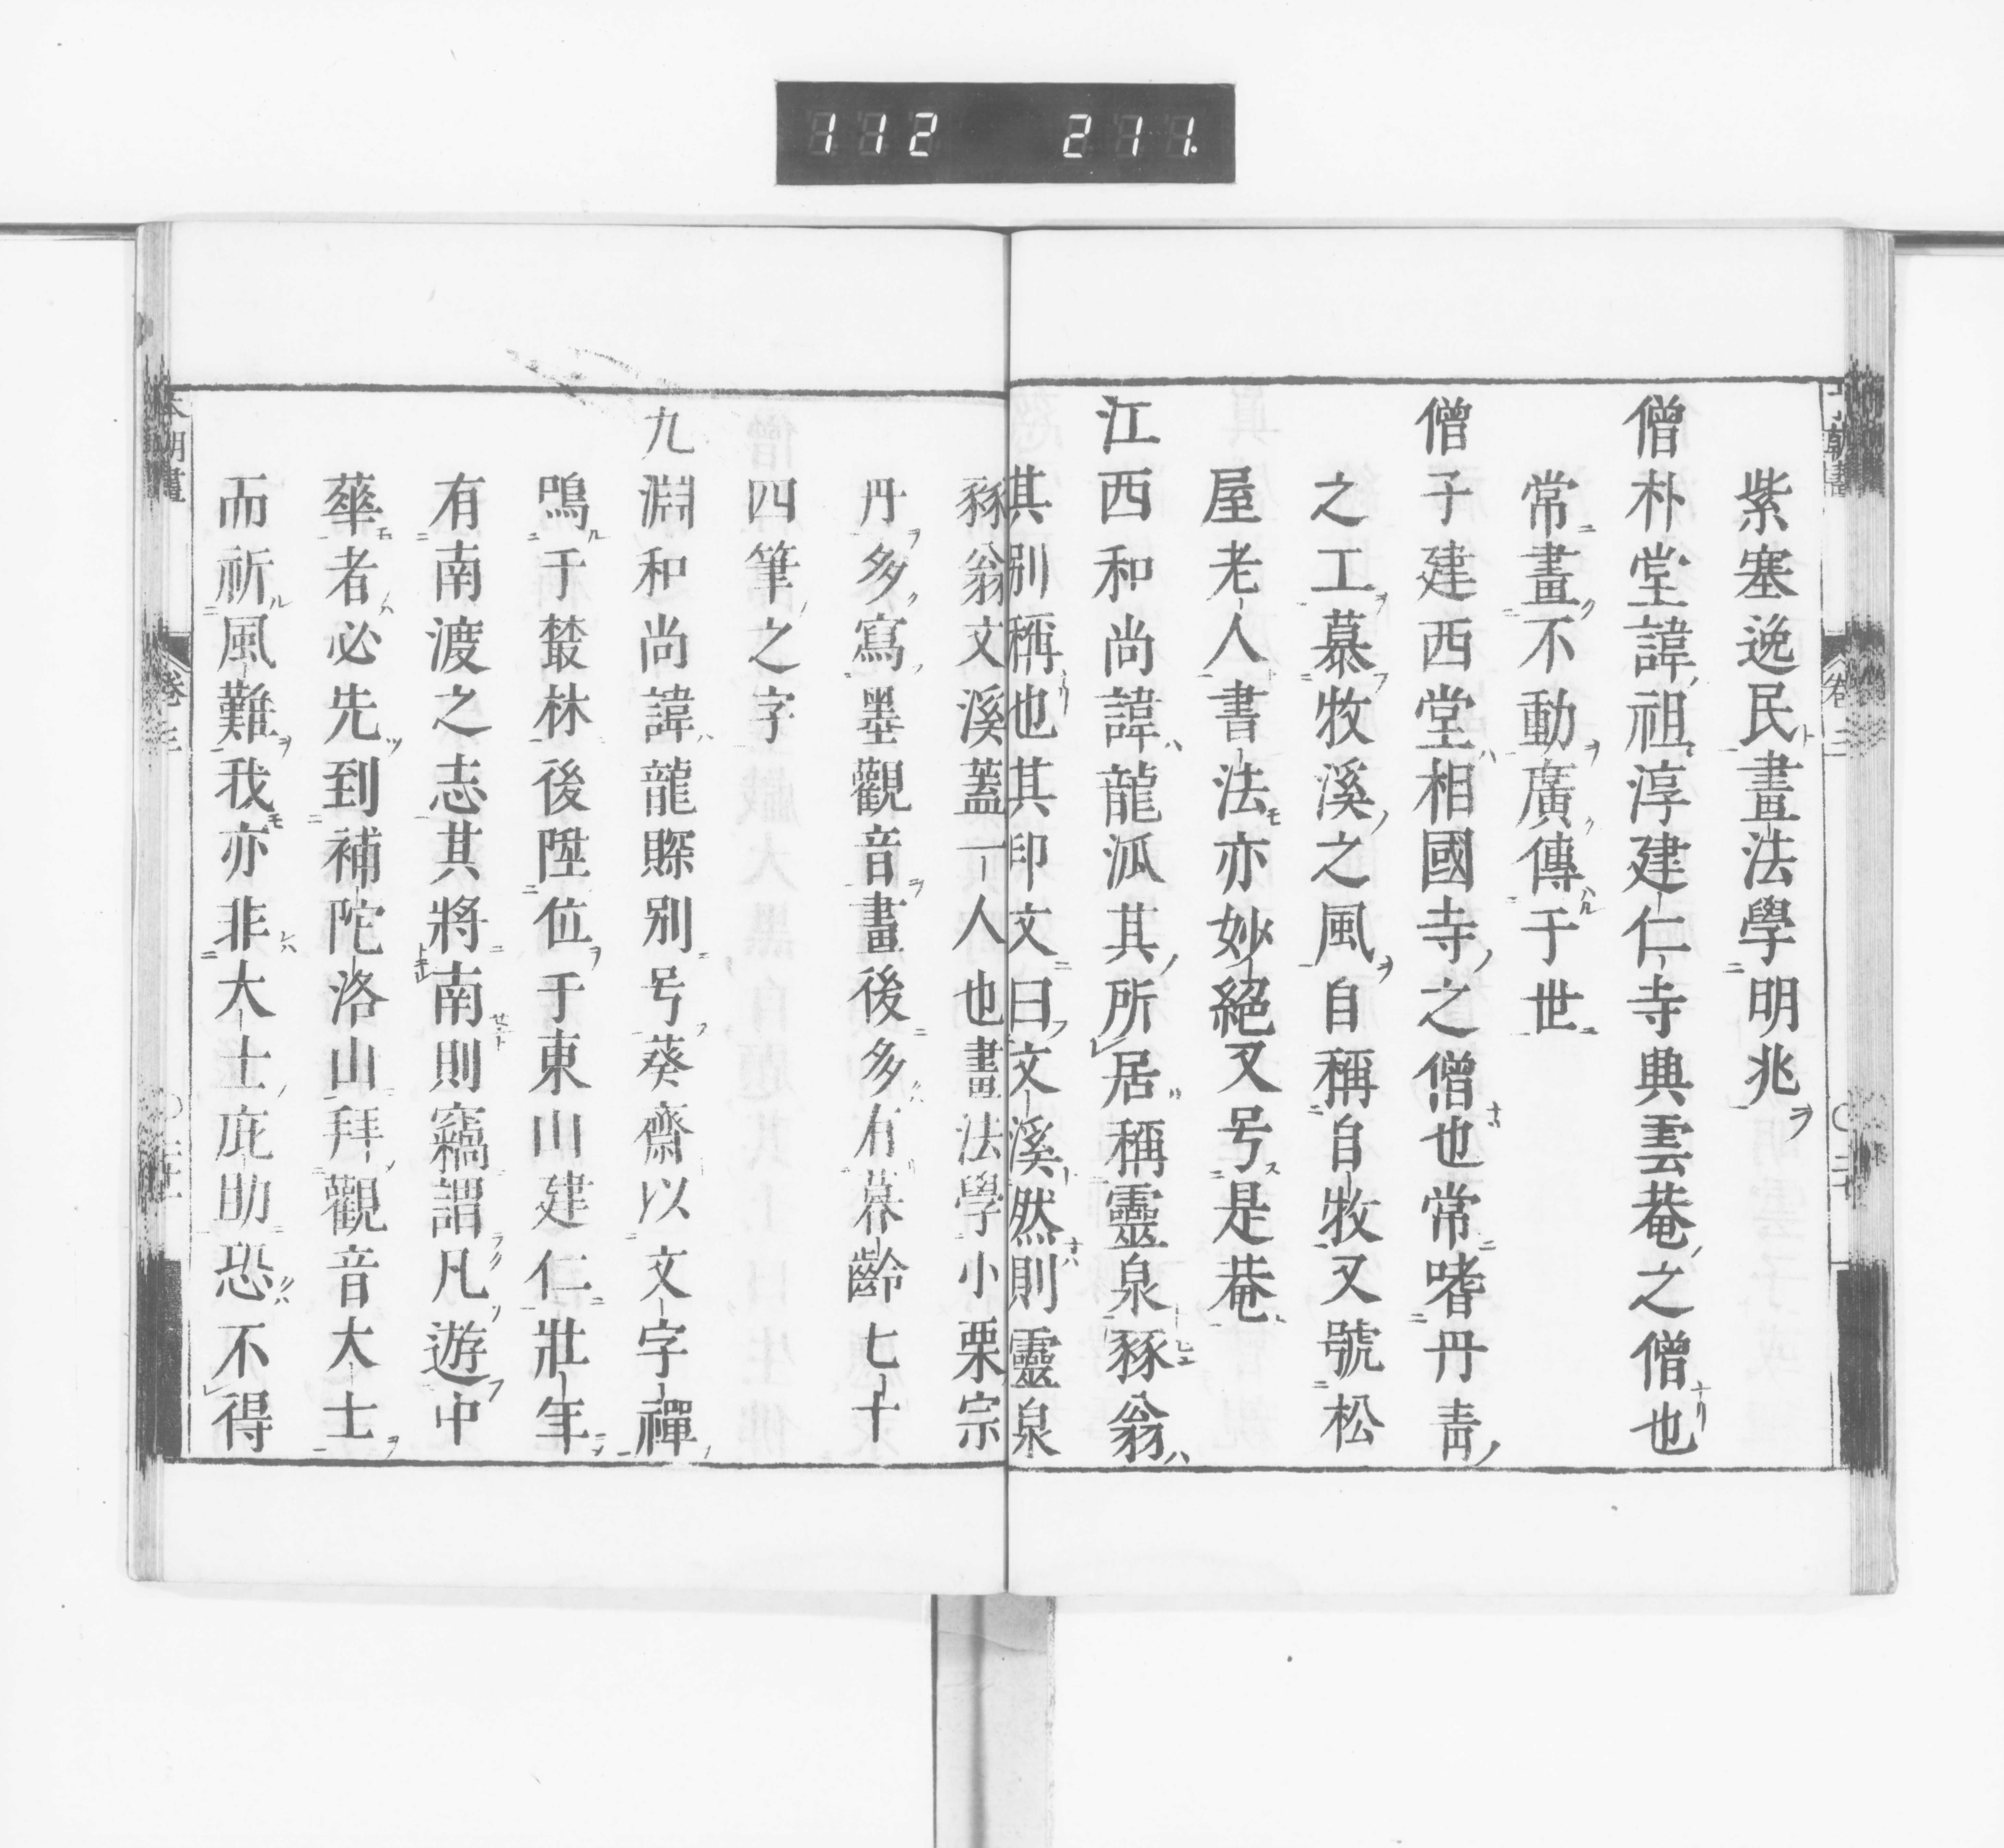 112 211.
紫塞逸民畫法學明兆
僧朴堂諱祖淳建仁寺典雲菴之僧也
常畫不動廣傳于世
僧子建西堂相國寺之僧也常嗜丹青
之工慕牧溪之風自稱自牧又號松
屋老人書法亦妙絕又号是菴
江西和尚諱龍泒其所居稱靈泉豩翁
其別稱也其印文曰文溪然則靈泉
豩翁文溪蓋一人也畫法學小栗宗
丹多寫墨觀音畫後多有暮齡七十
四筆之字
九淵和尚諱龍賝別号葵齋以文字禪
鳴于叢林後陞位于東山建仁壯年
有南渡之志其將南則竊謂凡遊中
華者必先到補陀洛山拜觀音大士
而祈風難我亦非大士庇助恐不得
本朝畫 卷三